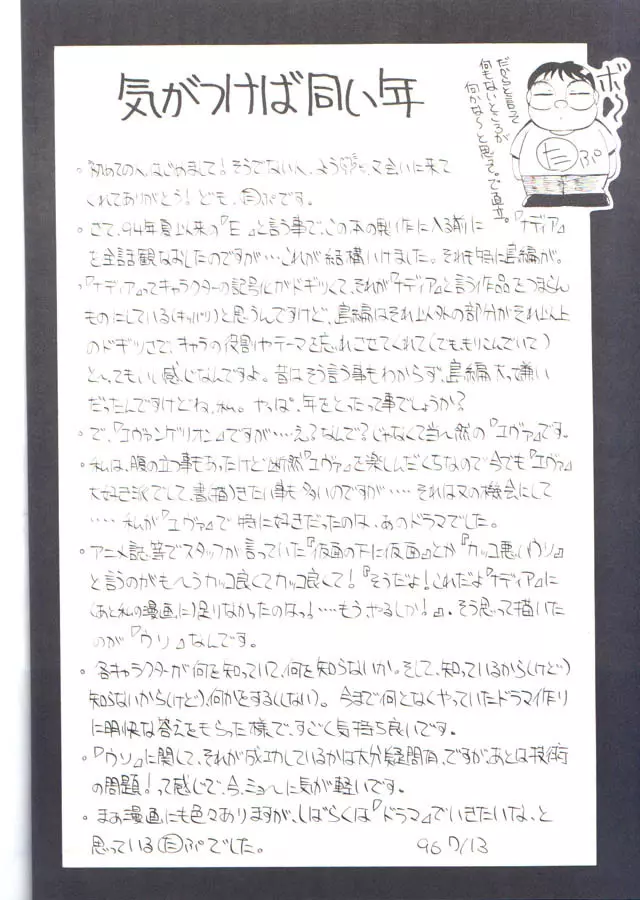 気がつけば同い年
ボ〜
だからと言って
何もないところが
何かな〜と思って。で直立。
たぷ
・初めての人、はじめまして!そうでない人、よう、また会いに来て
くれてありがとう!ども、たぷです。
・さて、94年夏以来の『E』と言う事で、この本の製作に入る前に『ナディア』
を全話観なおしたのですが…これが結構いけました。それも特に島編が。
・『ナディア』ってキャラクターの記号化がドギツくて、それが『ナディア』と言う作品をつまらん
ものにしている(キッパリ)と思うんですけど、島編はそれ以外の部分がそれ以上
のドギツさで、キャラの役割やテーマを忘れさせてくれて(でももりこんでいて)
とってもいい感じなんですよ。昔はそう言う事もわからず、島編大っ嫌い
だったんですけどね、私。やっぱ、年をとったって事でしょうか?
・で、『エヴァンゲリオン』ですが……え?なんで?じゃなくて当然の『エヴァ』です。
・私は、腹の立つ事もあったけど断然『エヴァ』を楽しんだくちなので今でも『エヴァ』
大好き派でして、書(描)きたい事も多いのですが……それはまの機会にして
……私が『エヴァ』で特に好きだったのは、あのドラマでした。
・アニメ誌等でスタッフが言っていた『仮面の下に仮面』とか『カッコ悪いウソ』
と言うのがも〜うカッコ良くてカッコ良くて!『そうだよ!これだよ『ナディア』に
(あと私の漫画に)足りなかったのはっ!……もう、やるしか!』。そう思って描いた
のが『ウソ』なんです。
・各キャラクターが何を知っていて、何を知らないか。そして、知っているから(けど)
知らないから(けど)、何かをする(しない)。今まで何となくやっていたドラマ作り
に明快な答えをもらった様で、すごく気持ち良いです。
・『ウソ』に関して、それが成功しているかは大分疑問有、ですが、あとは技術
の問題!って感じで、今、ミョ〜に気が軽いです。
・まぁ漫画にも色々ありますが、しばらくは『ドラマ』でいきたいな、と
思っているたぷでした。 96 7/13